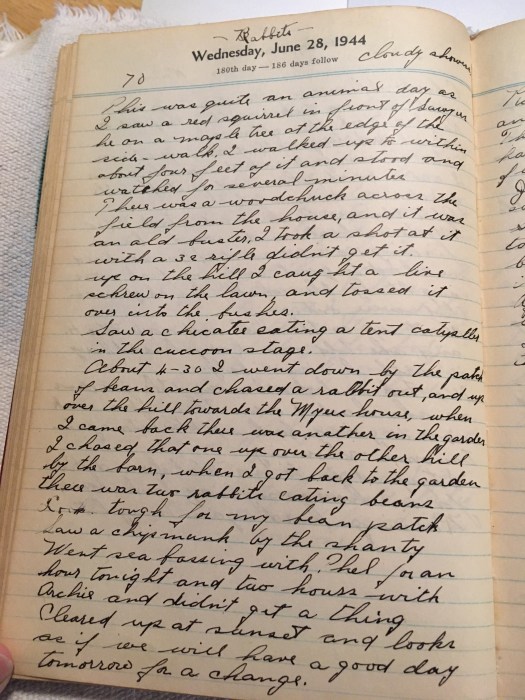 — Rabbits —
Wednesday, June 28, 1944
180th day — 186 days follow
cloudy showers
70
This was quite an animal day as
I saw a red squirrel in front of Sawyer
he on a maple tree at the edge of the
side-walk. I walked up to within
about four feet of it and stood and
watched for several minutes
There was a woodchuck across the
field from the house, and it was
an old buster, I took a shot at it
with a 32 rifle didn't get it.
up on the hill I caught a live
schrew on the lawn, and tossed it
over into the bushes.
Saw a chicatee eating a tent catapiller
in the cuccoon stage.
About 4-30 I went down by the patch
of beans and chased a rabbit out, and up
over the hill towards the Myer house, when
I came back there was another in the garden
I chased that one up over the other hill
by the barn, when I got back to the garden
there was two rabbits eating beans
tough for my bean patch
Saw a chipmunk by the shanty
Went sea bassing with Phel for an
hour tonight and two hours with
Archie and didn't get a thing
Cleared up at sunset and looks
as if we will have a good day
tomorrow for a change.